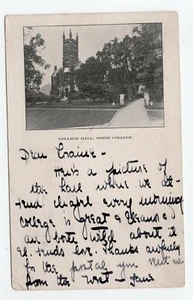 COLLEGE HALL, SMITH COLLEGE
Dear
Here's a picture of
the hall where we at-
tend chapel every morning
college is great &
am both wild about it
Thanks awfully
for the postal you sent me
from the West -